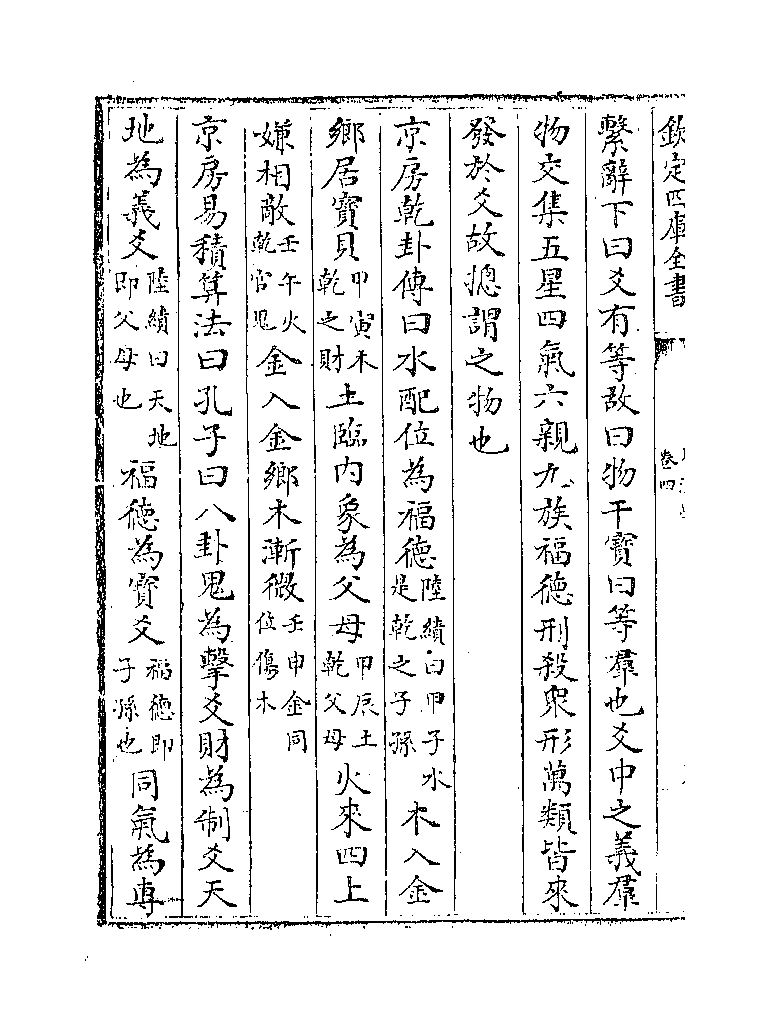 欽定四庫全書
卷四
繫辭下曰爻有等故曰物干寶曰等羣也爻中之義羣
物交集五星四氣六親九族福德刑殺衆形萬類皆來
發於爻故揔謂之物也
京房乾卦傳曰水配位為福德陸績曰甲子水是乾之子孫木入金
鄉居寶貝甲寅木乾之財土臨内象為父母甲辰土乾父母火來四上
嫌相敵壬午火乾官鬼金入金鄉木漸微壬申金同位傷木
京房易積算法曰孔子曰八卦鬼為擊爻財為制爻天
地為義爻陸績曰天地即父母也福德為寳爻福德即子孫也同氣為專